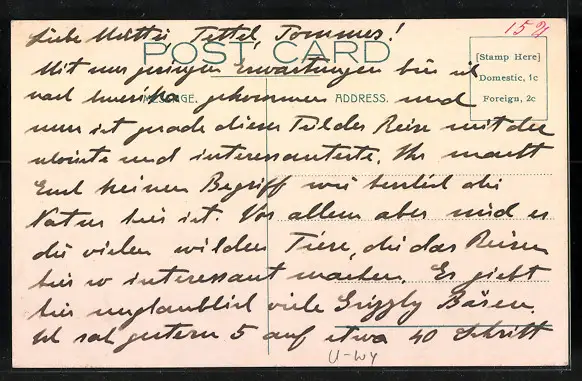 Liebe Mutter, Tettel, Tommes!
15 
POST CARD
[Stamp Here]
Domestic, 1c
Foreign, 2c
MESSAGE.
ADDRESS.
Mit nur geringen Erwartungen bin ich
nach Amerika gekommen und
nun ist gerade dieser Teil der Reise mit der
schönste und interessanteste. Ihr macht
Euch keinen Begriff wie herrlich die
Natur hier ist. Vor allem aber sind es
die vielen wilden Tiere, die das Reisen
hier so interessant machen. Es giebt
hier unglaublich viele Grizzly Bären.
Ich sah gestern 5 auf etwa 40 Schritt
U-WY